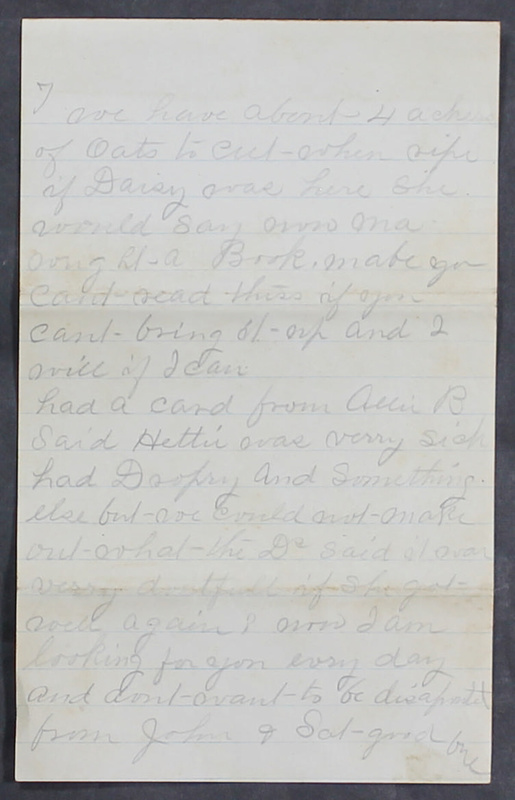 7
we have about 4 acks
of Oats to cut when ripe
if Daisy was here she
would say now ma
dont a Book. mabe you
cant read this if you
cant bring it up and I
will if I can
had a card from Allie B
Said Hettie was verry sick
had Dropsy And Something
else but we could not make
out what the Dr said it was
verry doutfull if she got
well again & now I am
looking for you evry day
and dont want to be disapntt
from John & Sat good bye